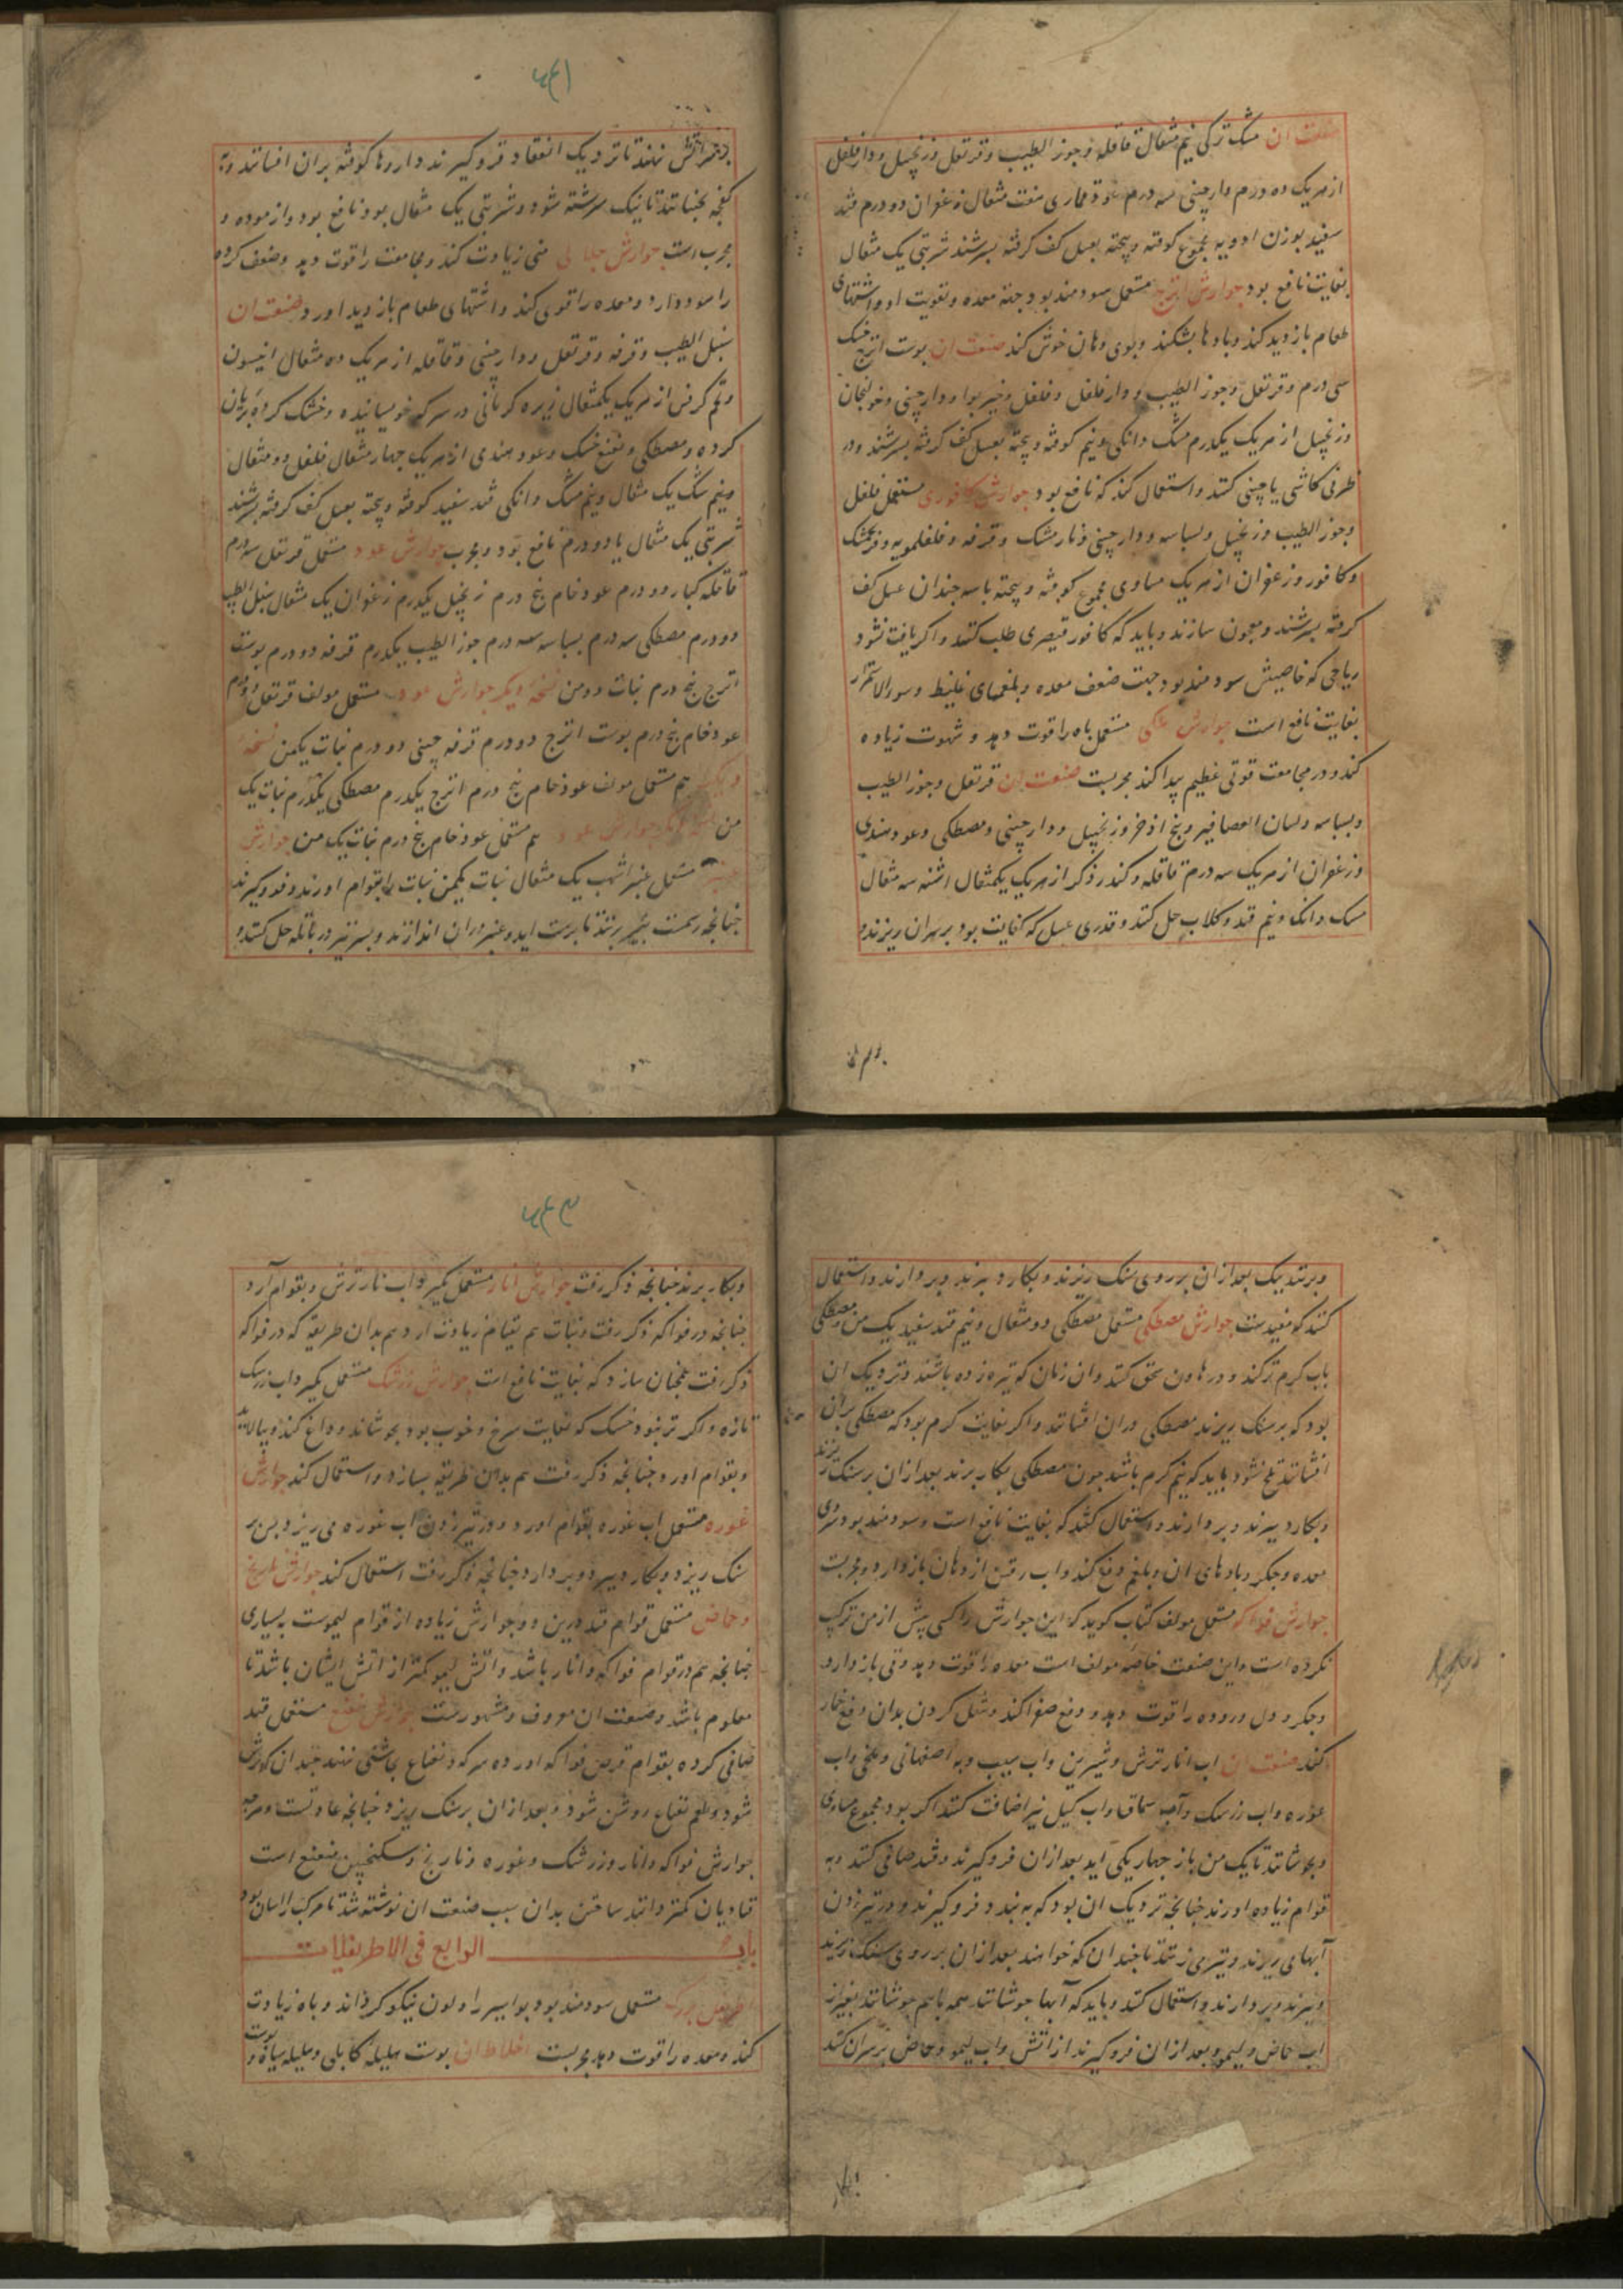 صنعت ان مشک ترکی نیم مثقال قاقله و جوز الطیب و قرنفل و زنجبیل و دار فلفل
از هریک ده درم دارچینی سه درم عود قماری هفت مثقال زعفران دو درم قند
سفید بوزن ادویه مجموع کوفته و پخته بعسل کف کرفته بسرشند شربتی یک مثقال
بغایت نافع بود جوارش اترج مستعمل سودمند بود جهة معده و تقویت او و اشتهای
طعام بازدید کند و بادها بشکند و بوی دهان خوش کند صنعت ان پوست اترج خشک
سی درم و قرنفل و جوز الطیب و دار فلفل و فلفل و خیر بوا و دارچینی و خولنجان
و زنجبیل از هریک یکدرم مشک دانکی و نیم کوفته و پخته بعسل کف کرفته بسرشند و در
ظرفی کاشی یا چینی کنند و استعمال کند که نافع بود جوارش کافوری مستعمل فلفل
و جوز الطیب و زنجبیل و بسباسه و دارچینی و نارمشک و قرفه و فلفلمویه و فرنجمشک
و کافور و زعفران از هریک مساوی مجموع کوفته و پخته با سه جندان عسل کف
کرفته بسرشند و معجون سازند و باید که کافور قیصوری طلب کنند و اکر یافت نشود
ریاحی که خاصیتش سودمند بود جهت ضعف معده و بلغمهای غلیظ و سوء الاستمرار
بغایت نافع است جوارش ملکی مستعمل باه را قوت دهد و شهوت زیاده
کند و در مجامعت قوتی عظیم پیدا کند مجربست صنعت ان قرنفل و جوز الطیب
و بسباسه و لسان العصافیر و بیخ اذخر و زنجبیل و دارچینی و مصطکی و عود هندی
و زعفران از هریک سه درم قاقله و کندر ذکر از هریک یکمثقال اشنه سه مثقال
مسک دانک و نیم قند و کلاب حل کنند و قدری عسل که کفایت بود بر سر ان ریزند و
بر سر اتش نهند تا نزدیک انعقاد فروکیرند داروها کوفته بران افشانند و به
کفچه بجنبانند تا نیک سرشته شود و شربتی یک مثقال بود نافع بود و ازموده و
مجرب است جوارش جلالی منی زیادت کند و مجامعت را قوت دهد و ضعف کرده
را سود دارد و معده را قوی کند و اشتهای طعام بازدید اورد صنعت ان
سنبل الطیب و قرفه و قرنفل و دارچینی و قاقله از هریک ده مثقال انیسون
و تخم کرفس از هریک یکمثقال زیره کرمانی در سرکه خویسانیده و خشک کرده بریان
کرده و مصطکی و نعنع خشک و عود هندی از هریک چهار مثقال فلفل دو مثقال
و نیم سک یک مثقال و نیم مشک دانکی قند سفید کوفته و پخته بعسل کف کرفته بسرشند
شربتی یک مثقال یا دو درم نافع بود و مجرب جوارش عود مستعمل قرنفل سه درم
قاقله کبار دو درم عود خام پنج درم زنجبیل یکدرم زعفران یک مثقال سنبل الطیب
دو درم مصطکی سه درم بسباسه سه درم جوز الطیب یکدرم قرفه دو درم پوست
اترج پنج درم نبات دو من نسخه دیکر جوارش عود مستعمل مولف قرنفل دو درم
عود خام پنج درم پوست اترج دو درم قرفه چینی دو درم نبات یکمن نسخه
دیکر هم مستعمل مولف عود خام پنج درم اترج یکدرم مصطکی یکدرم نبات یک
من نسخه دیکر جوارش عود هم مستعمل عود خام پنج درم نبات یک من جوارش
عنبر مستعمل عنبر اشهب یک مثقال نبات یکمن نبات را بقوام اورند و فروکیرند
جنانجه رسمت بتیر بزنند تا برست اید و عنبر دران اندازند و بسر تیر در پاتله حل کنند و
و بزنند نیک بعد ازان بر روی سنک ریزند و بکارد ببرند و بردارند و استعمال
کنند که مفیدست جوارش مصطکی مستعمل مصطکی دو مثقال و نیم قند سفید یک من مصطکی
باب کرم تر کند و در هاون سحق کنند و ان زمان که تیره زده باشند و نزدیک ان
بود که بر سنک ریزند مصطکی دران افشانند و اکر بغایت کرم بود که مصطکی بران
افشانند تلخ شود باید که نیم کرم باشد جون مصطکی بکار برند بعد ازان بر سنک ریزند
و بکارد ببرند و بردارند و استعمال کنند که بغایت نافع است و سودمند بود سردی
معده و جکر و بادهای ان و بلغم دفع کند و اب رفتن از دهان باز دارد و مجربست
جوارش فواکه مستعمل مولف کتاب کوید که این جوارش را کسی پیش از من ترکیب
نکرده است و این صنعت خاصه مولف است معده را قوت دهد و قی باز دارد
و جکر و دل و روده را قوت دهد و دفع صفرا کند و نقل کردن بدان دفع خمار
کند صنعت ان اب انار ترش و شیرین و اب سیب و به اصفهانی و بلخی و اب
غوره و اب زرشک و اب سماق و اب کیل نیز اضافت کنند اکر بود مجموع مساوی
و بجوشانند تا یک من باز چهار یکی آید بعد ازان فروکیرند و قند صافی کنند و به
قوام زیاده اورند جنانجه نزدیک ان بود که به بندد و فروکیرند و در تیر زدن
آبها می ریزند و تیر می زنند تا جندان که خواهند بعد ازان بر روی سنک ریزند
و ببرند و بردارند و استعمال کنند و باید که آبها جوشانند همه باهم جوشانند بغیر از
اب حماض و لیمو و بعد ازان فروکیرند از اتش و اب لیمو و حماض بر سر ان کنند
و بکار برند جنانجه ذکر رفت جوارش انار مستعمل بکیرد اب نار ترش و بقوام آرد
جنانجه در فواکه ذکر رفت و نبات هم بقوام زیادت ارد هم بدان طریقه که در فواکه
ذکر رفت بلخجان سازد که بغایت نافع است جوارش زرشک مستعمل بکیرد اب زرشک
تازه و اکر تر نبود خشک که بغایت سرخ و خوب بود بجوشاند و داغ کند و بپالاید
و بقوام اورد جنانجه ذکر رفت هم بدین طریقه بسازد و استعمال کند جوارش
غوره مستعمل اب غوره بقوام اورد و در تیر زدن اب غوره می ریزد پس بر
سنک ریزد و بکارد ببرد و بردارد جنانجه ذکر رفت استعمال کند جوارش نارنج
و حماض مستعمل قوام قند درین دو جوارش زیاده از قوام لیموست به بسیاری
جنانجه هم در قوام فواکه و انار باشد و اتش لیمو کمتر از اتش ایشان باشد تا
معلوم باشد و صنعت ان معروف و مشهورست جوارش نعنع مستعمل قند
صافی کرده بقوام قرص فواکه اورده سرکه و نعناع بجاشنی نهند جندان که ترش
شود و طعم نعناع روشن شود و بعد ازان بر سنک ریزد جنانجه عادتست و مرجه
جوارش فواکه و انار و زرشک و غوره و نارنج و سکنجبین منعنع است
قنادیان کمتر دانند ساختن بدان سبب صنعت ان نوشته شد تا مرکب را اسان بود
باب الرابع فی الاطریفلات
اطریفل بزرک مستعمل سودمند بود بواسیر را و لون نیکو کرداند و باه زیادت
کند و معده را قوت دهد مجربست اخلاط ان پوست هلیله کابلی و هلیله سیاه و پوست